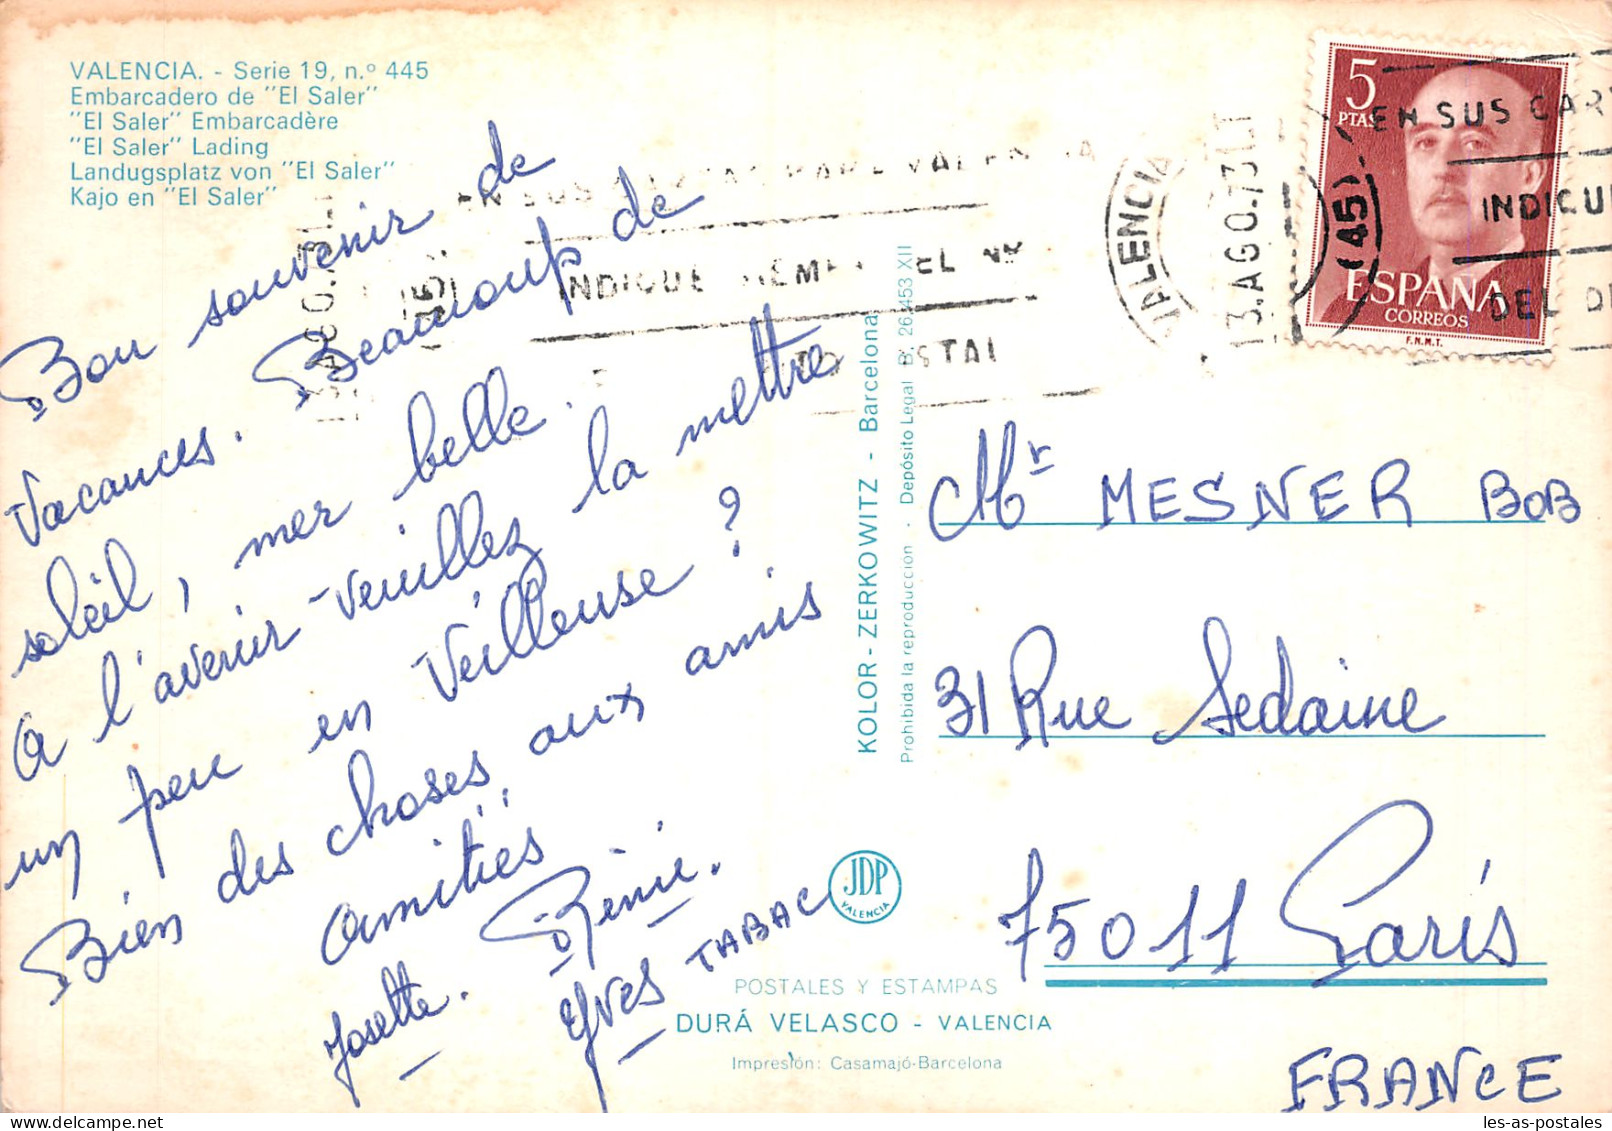 VALENCIA. - Serie 19, n.º 445
Embarcadero de "El Saler"
"El Saler" Embarcadère
"El Saler" Lading
Landugsplatz von "El Saler"
Kajo en "El Saler"
Bon souvenir de
Vacances. Beaucoup de
soleil, mer belle.
A l'avenir - veuillez la mettre
un peu en Veilleuse ?
Bien des choses aux amis
Amitiés
Josette. Rénie.
Yves TABAC
KOLOR - ZERKOWITZ - Barcelona
Prohibida la reproducción - Depósito Legal B. 26.453 XII
JDP
VALENCIA
POSTALES Y ESTAMPAS
DURÁ VELASCO - VALENCIA
Impresión: Casamajó-Barcelona
5
PTAS
ESPAÑA
CORREOS
F.N.M.T.
VALENCIA
13.AGO.73
(45)
EN SUS CAR
INDIQU
DEL DI
EN SUS VALENCIA
INDIQUE SIEMPRE EL
Mr MESNER BOB
31 Rue Sedaine
75011 Paris
FRANCE
les-as-postales